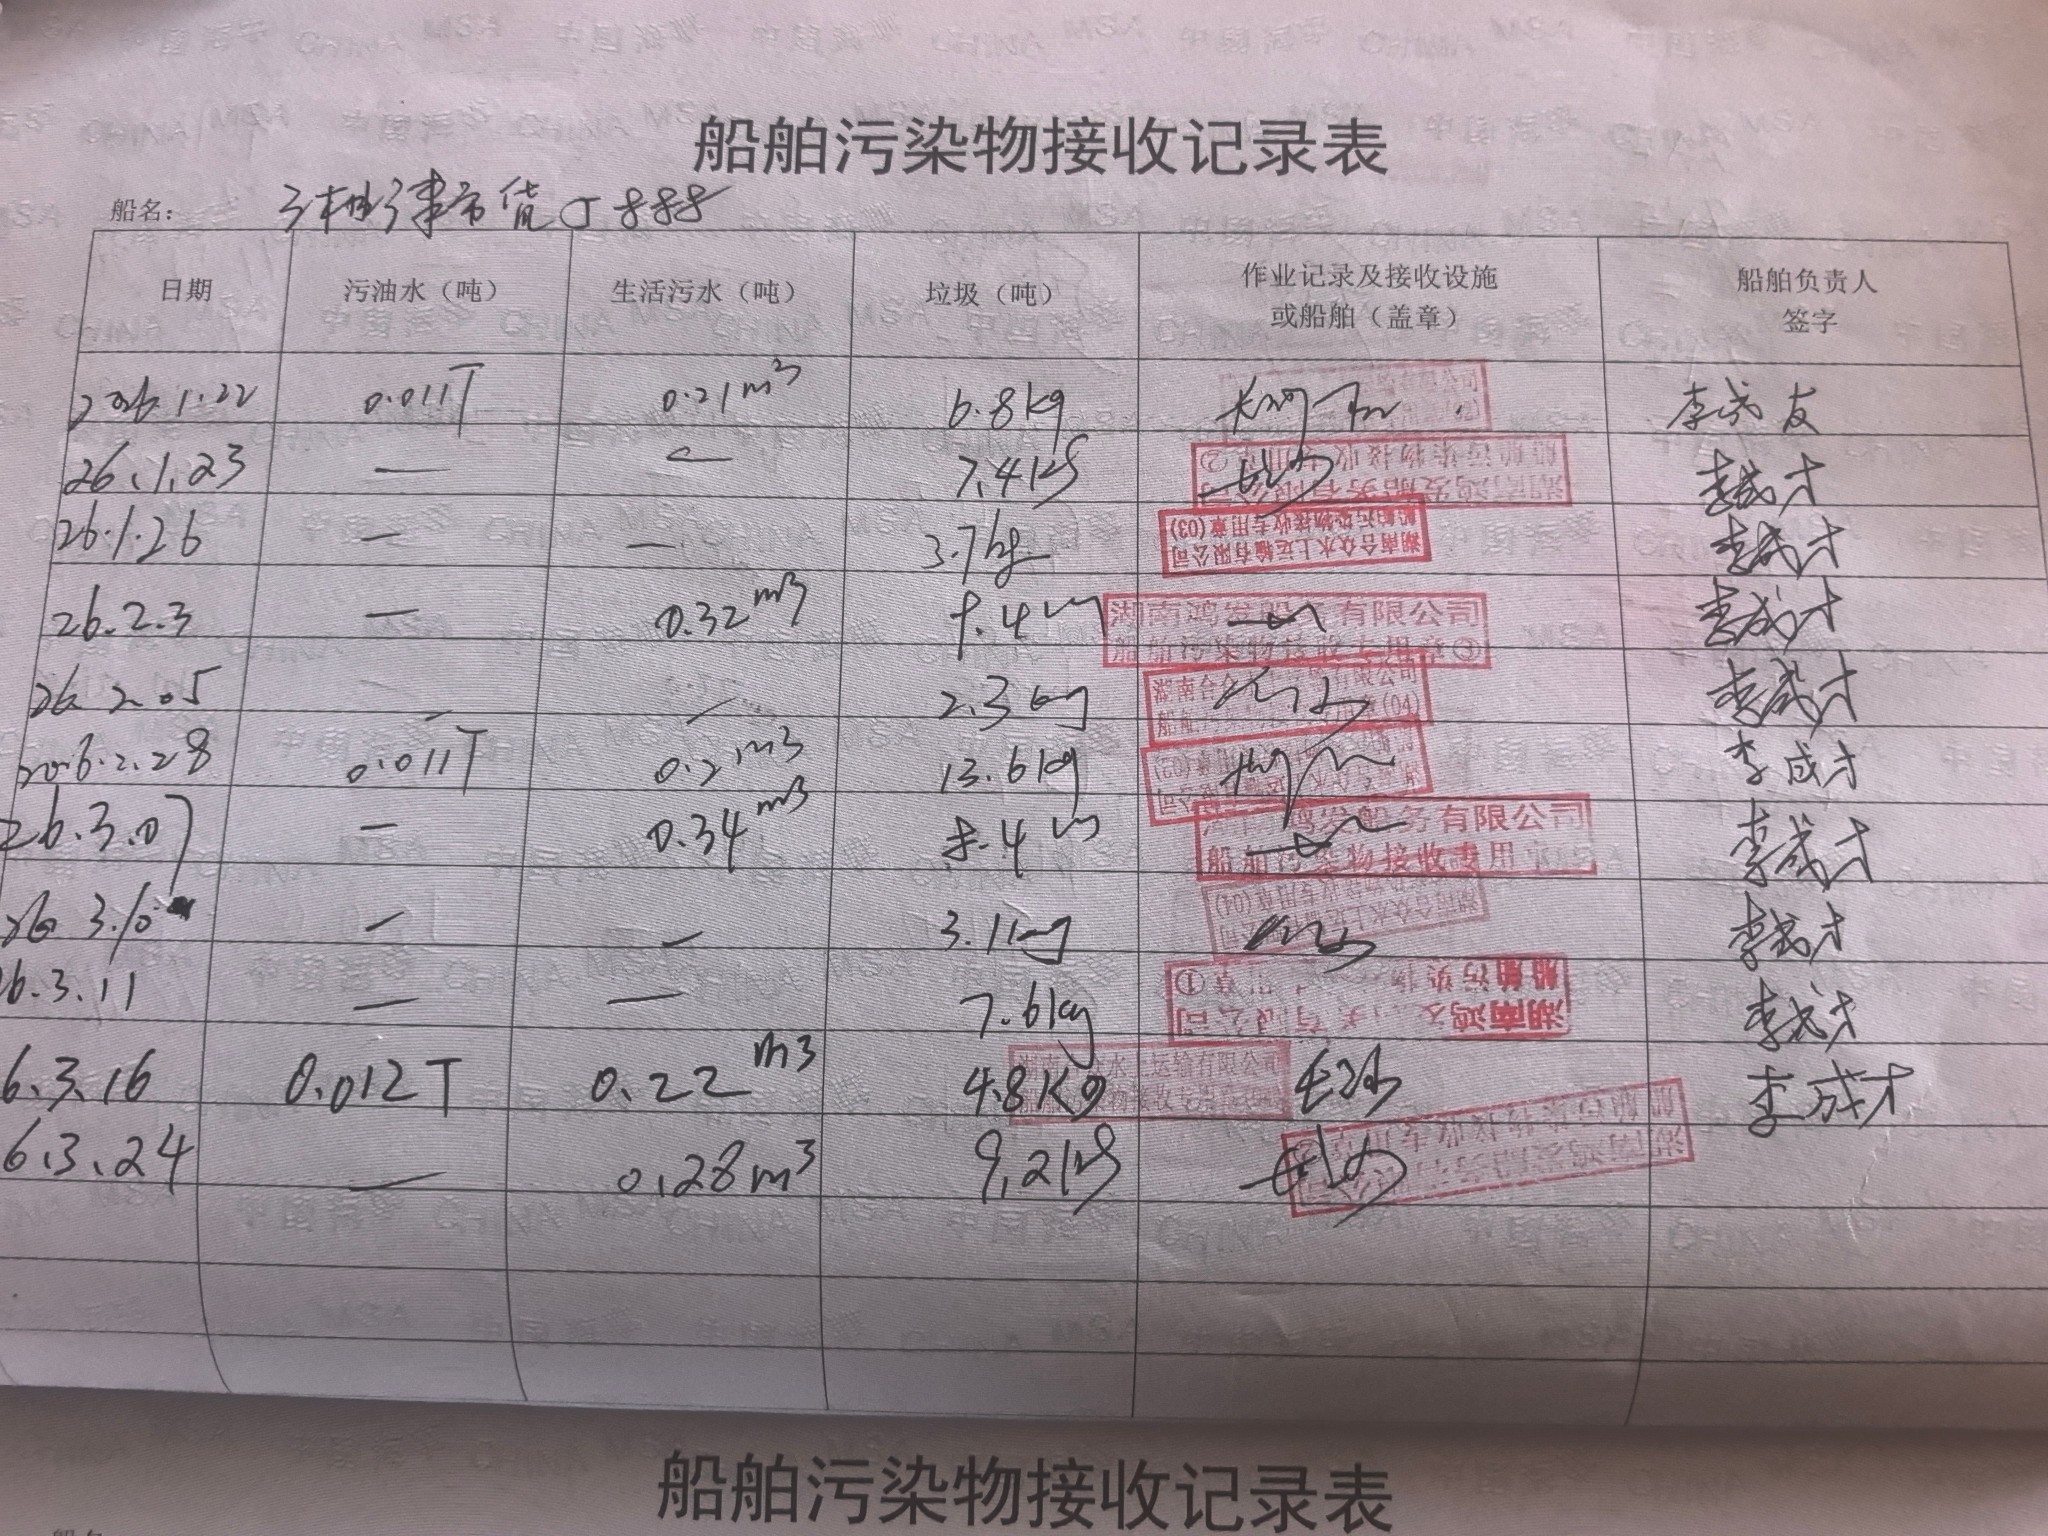 船舶污染物接收记录表
船名： 津市货 888
日期 污油水（吨） 生活污水（吨） 垃圾（吨） 作业记录及接收设施或船舶（盖章） 船舶负责人签字
2026.1.22 0.011T 0.21m³ 6.8kg
26.1.23 — — 7.4kg 湖南鸿发船务有限公司 船舶污染物接收专用章② 李成才
26.1.26 — — 3.7kg 湖南合众水上运输有限公司 船舶污染物接收专用章(03) 李成才
26.2.3 — 0.32m³ 湖南鸿发船务有限公司 船舶污染物接收专用章③ 李成才
26.2.05 — — 2.3kg 湖南合众 有限公司 (04) 李成才
2026.2.28 0.011T 0.2m³ 13.6kg 李成才
26.3.07 — 0.34m³ 鸿发船务有限公司 船舶污染物接收专用章 李成才
26.3.10 — — 3.1kg 湖南合众水上运输有限公司 船舶污染物接收专用章(04) 李成才
26.3.11 — — 7.6kg 湖南鸿 有限公司 船舶污染物 章① 李成才
6.3.16 0.012T 0.22m³ 4.8Kg 水上运输有限公司 李成才
6.3.24 — 0.28m³ 9.2kg 湖南鸿发船务有限公司 船舶污染物接收专用章
船舶污染物接收记录表